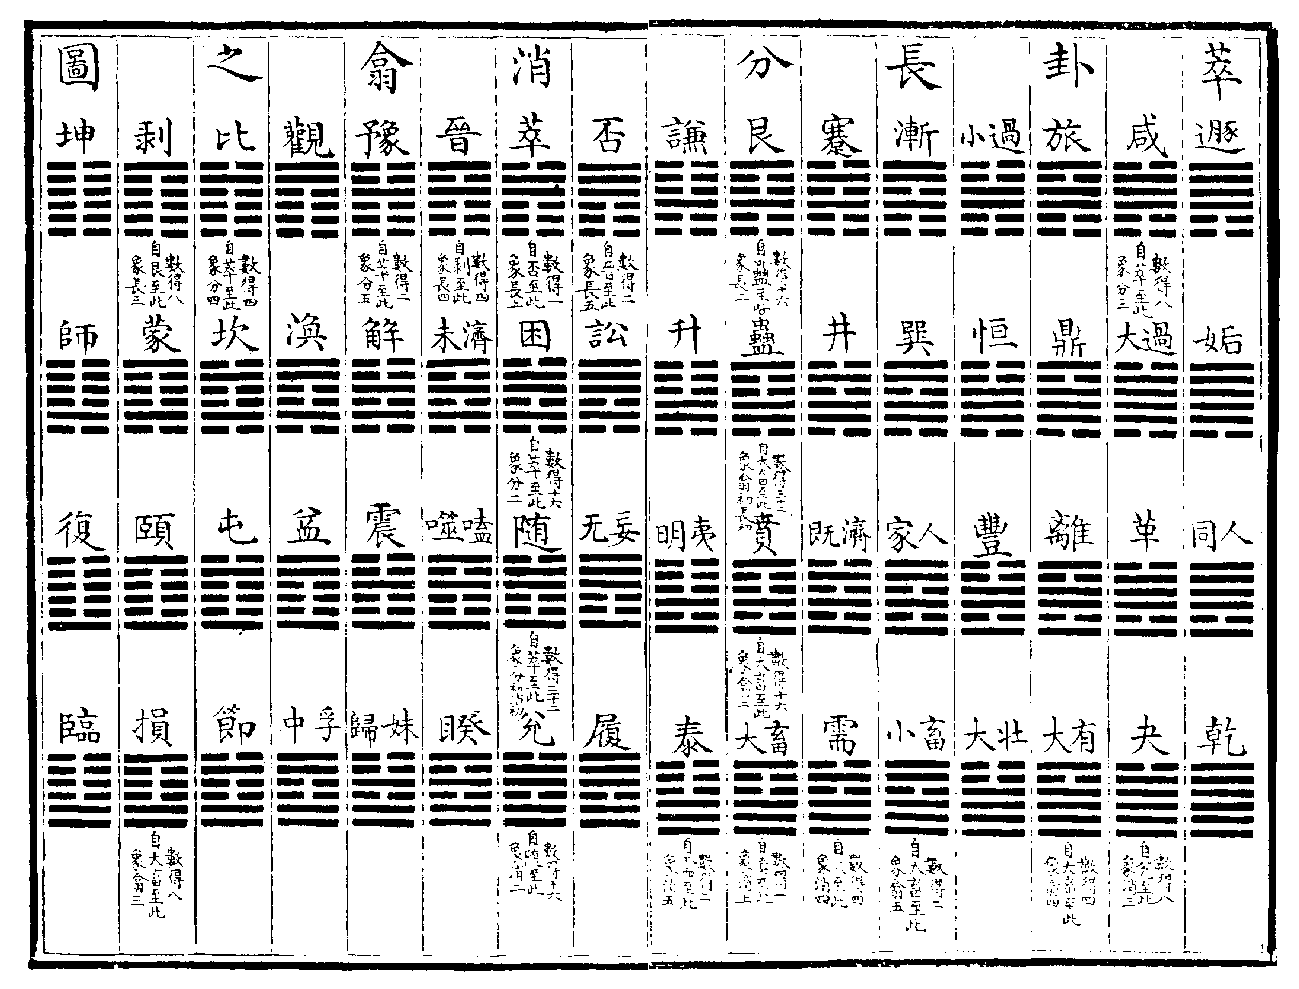 萃卦長分消翕之圖
遯
咸
旅
小過
漸
蹇
艮
謙
否
萃
晉
豫
觀
比
剥
坤
數得八
自萃至此
象分三
數得十六
自蠱至此
象長二
數得二
至此
象長五
數得一
自否至此
象長上
數得四
自剥至此
象長四
數得二
自萃至此
象分五
數得四
自萃至此
象分四
數得八
自艮至此
象長三
姤
大過
鼎
恒
巽
井
蠱
升
訟
困
未濟
解
渙
坎
蒙
師
數得三十二
自大畜至此
象翕初長
數得十六
自萃至此
象分二
同人
革
離
豐
家人
既濟
賁
明夷
无妄
随
噬嗑
震
益
屯
頤
復
數得十六
自大畜至此
象翕二
數得三十二
自萃至此
象分初消初
乾
夬
大有
大壯
小畜
需
大畜
泰
履
兌
睽
歸妹
中孚
節
損
臨
數得八
至此
象消三
數得四
自大畜至此
象翕四
數得二
自大畜至此
象翕五
數得四
至此
象消四
數得一
至此
象消上
數得二
至此
象消五
數得十六
自随至此
象消二
數得八
自大畜至此
象翕三